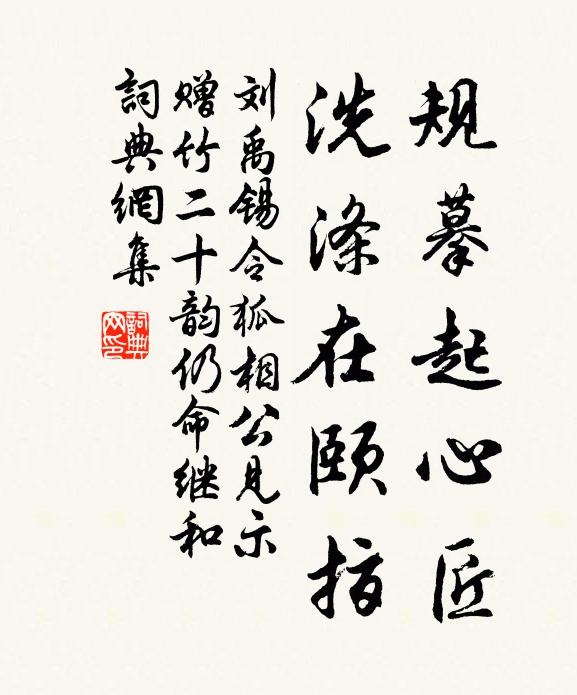 规摹起心匠
洗涤在颐指
刘禹锡令狐相公见示
赠竹二十韵仍命继和
詞典網集
詞典网印